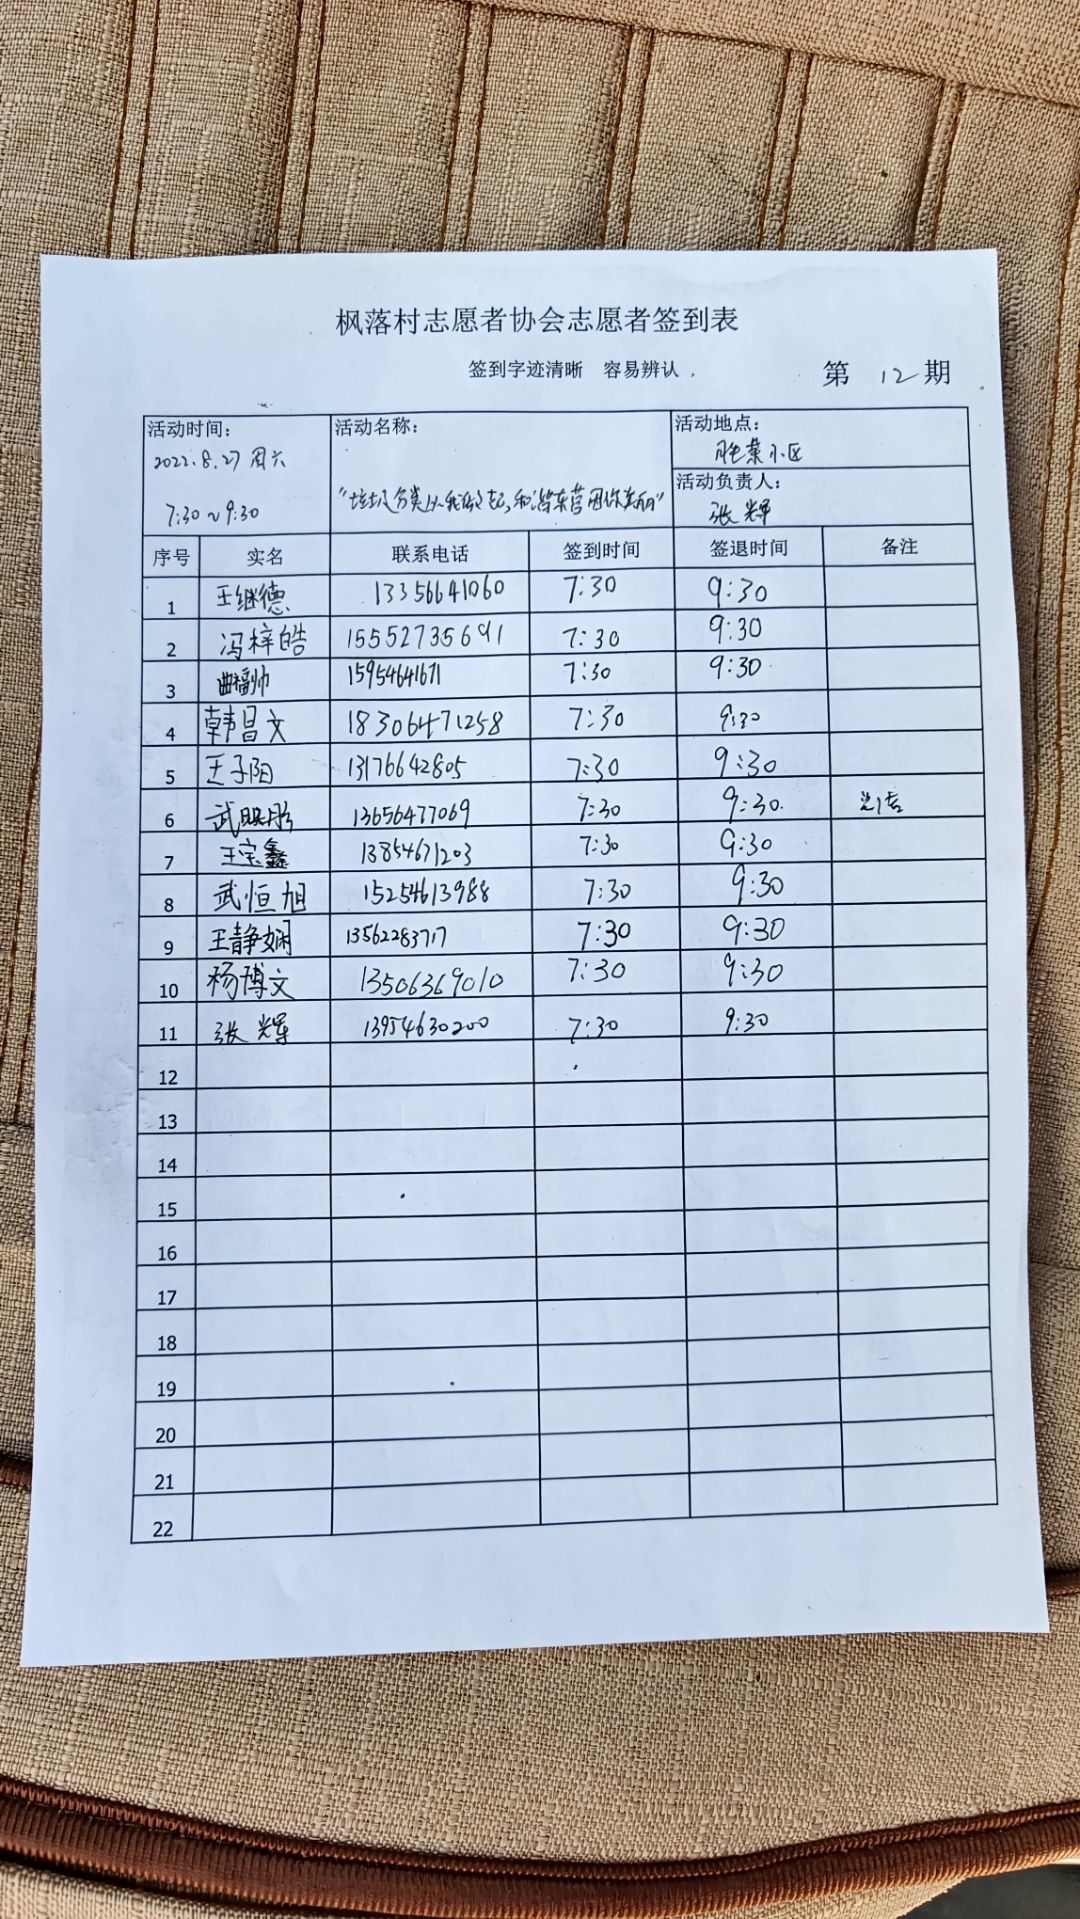 枫落村志愿者协会志愿者签到表
签到字迹清晰 容易辨认
第 12 期
活动时间: 活动名称: 活动地点:
2022.8.27 周六 胜荣小区
活动负责人:
7:30~9:30 "垃圾分类从我做起,和谐东营因你美丽" 张辉
序号 实名 联系电话 签到时间 签退时间 备注
1 王继德 13356641060 7:30 9:30
2 冯梓皓 15552735691 7:30 9:30
3 曲福帅 15954641671 7:30 9:30
4 韩昌文 18306471258 7:30 9:30
5 王子阳 13176642805 7:30 9:30
6 武 13656477069 7:30 9:30
7 王宝鑫 13854671203 7:30 9:30
8 武恒旭 15254613988 7:30 9:30
9 王静娴 13562283717 7:30 9:30
10 杨博文 13506369010 7:30 9:30
11 张辉 13954630200 7:30 9:30
12
13
14
15
16
17
18
19
20
21
22